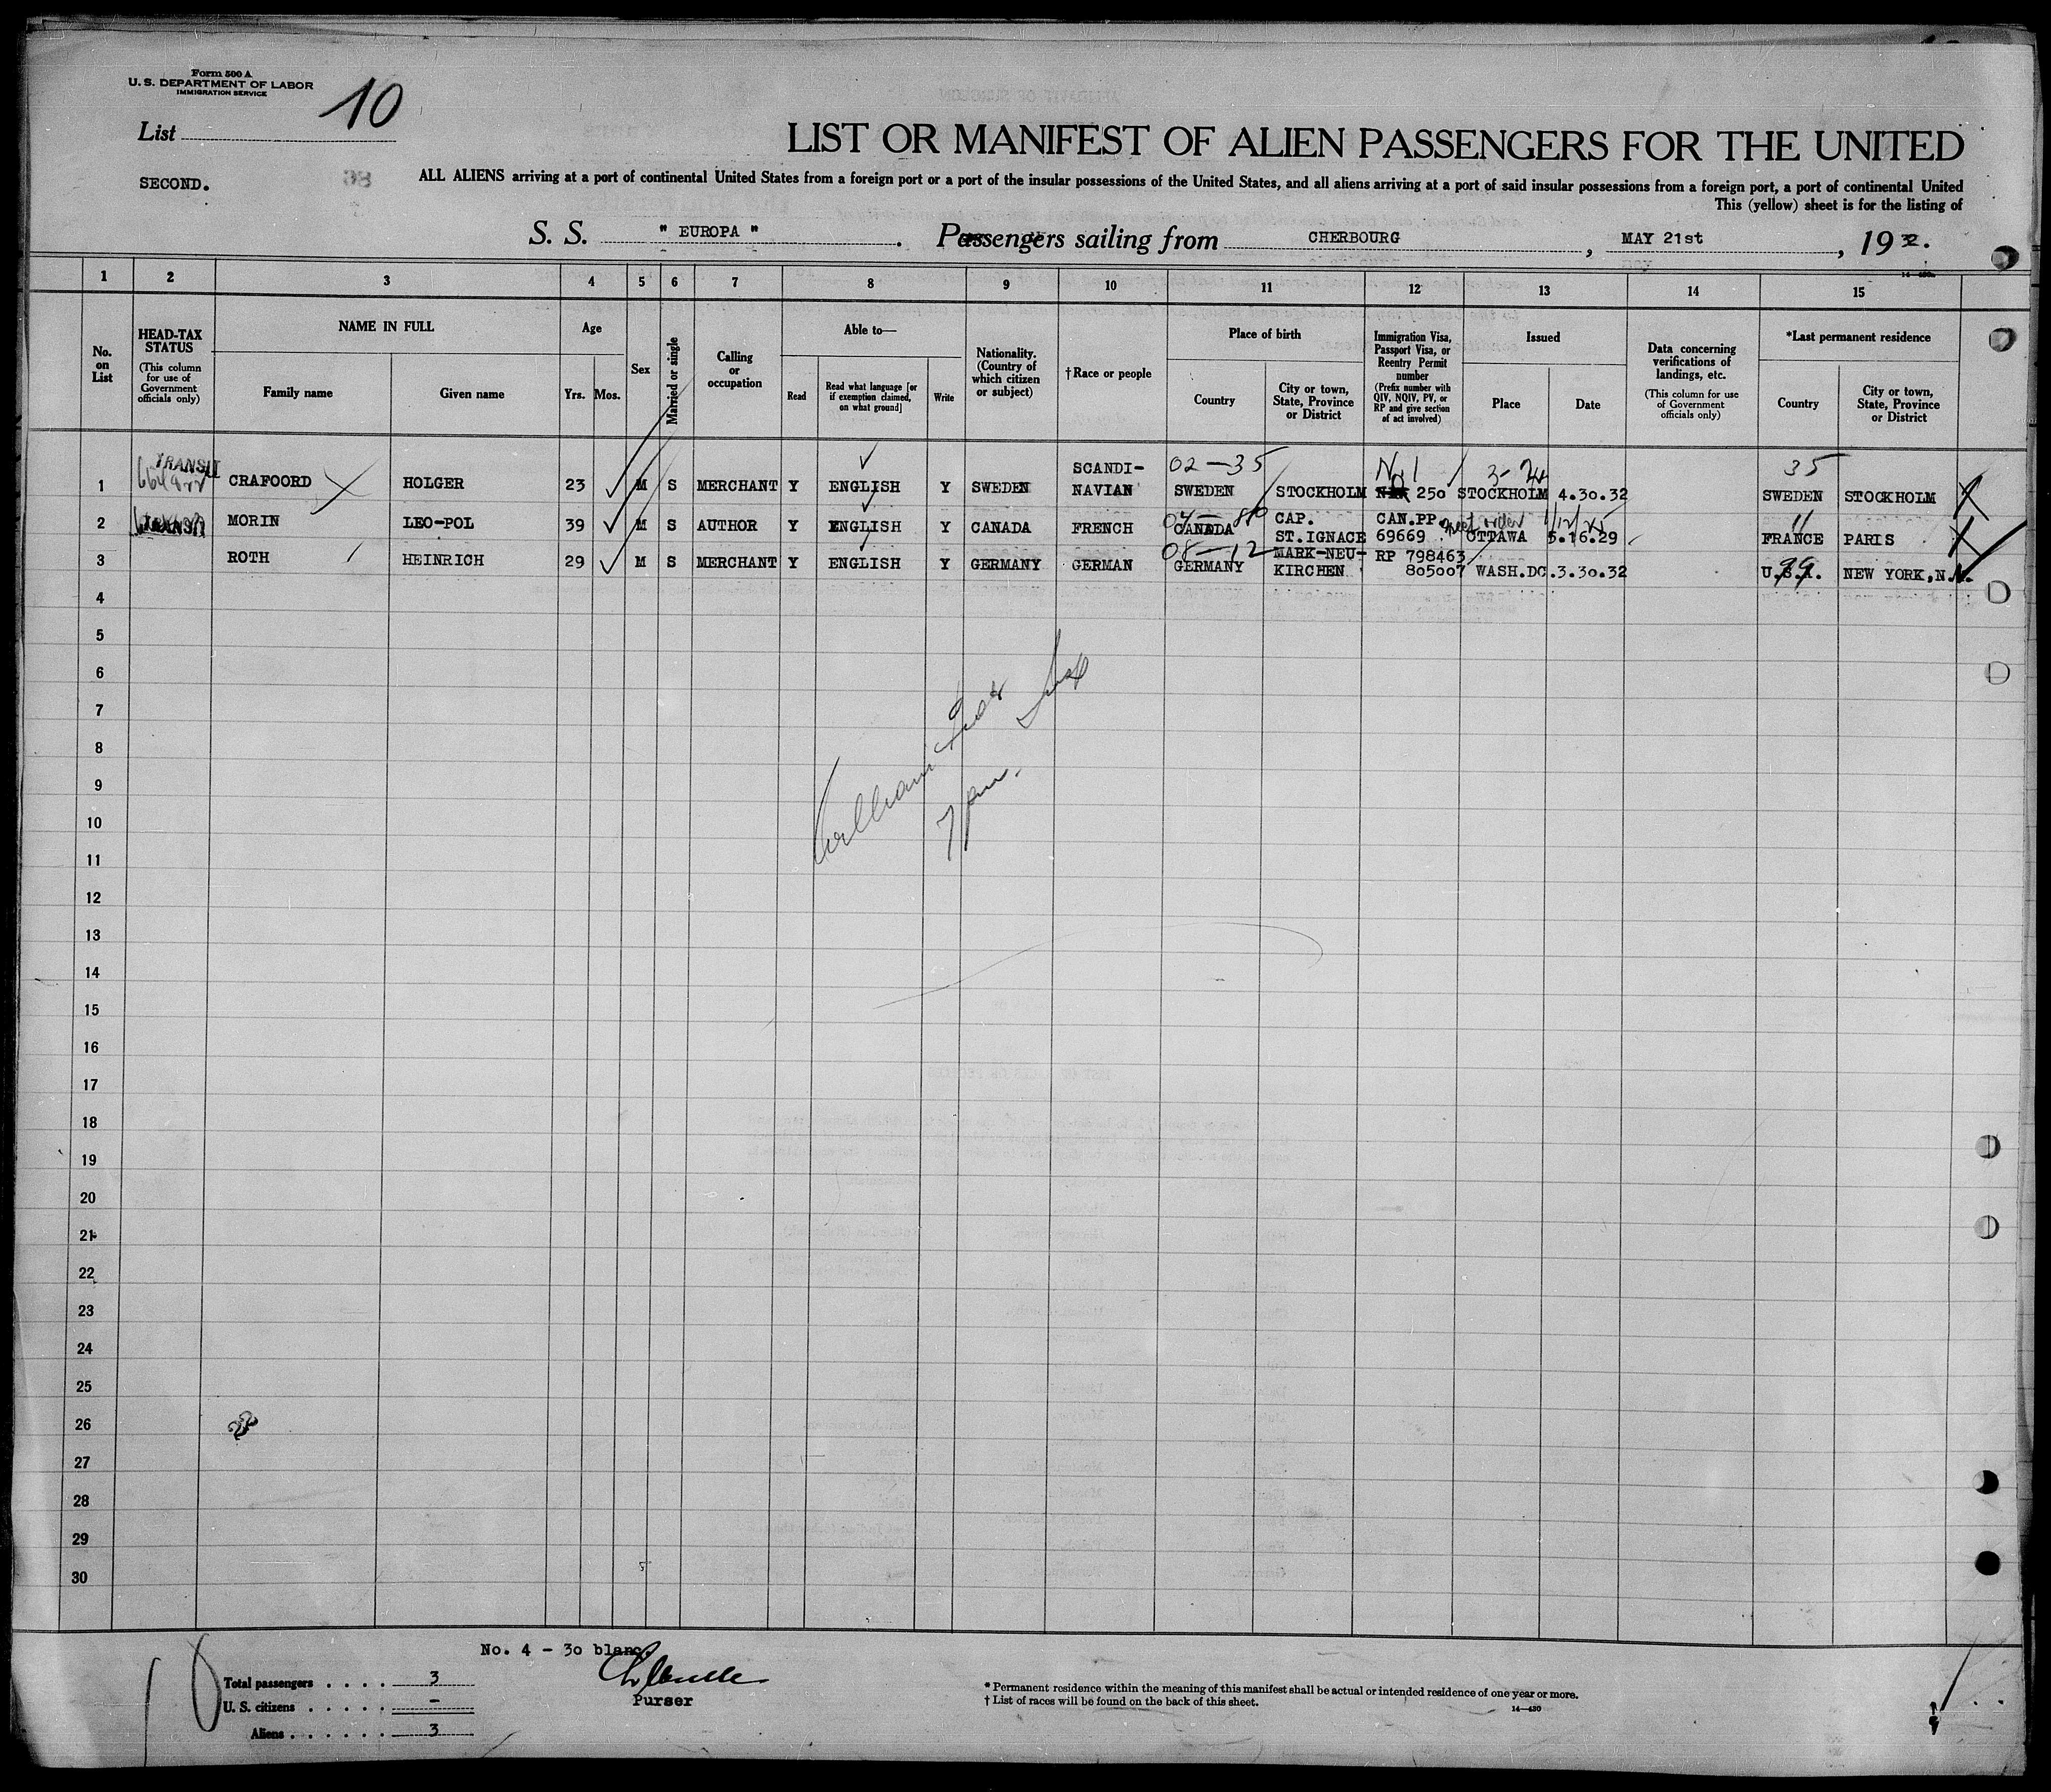 Form 500 A
U. S. DEPARTMENT OF LABOR
IMMIGRATION SERVICE
List 10
LIST OR MANIFEST OF ALIEN PASSENGERS FOR THE UNITED
SECOND.
ALL ALIENS arriving at a port of continental United States from a foreign port or a port of the insular possessions of the United States, and all aliens arriving at a port of said insular possessions from a foreign port, a port of continental United
This (yellow) sheet is for the listing of
S. S. " EUROPA " . Passengers sailing from CHERBOURG , MAY 21st , 1932.
1 2 3 4 5 6 7 8 9 10 11 12 13 14 15
No. on List
HEAD-TAX STATUS
(This column for use of Government officials only)
NAME IN FULL
Family name
Given name
Age
Yrs. Mos.
Sex
Married or single
Calling or occupation
Able to—
Read
Read what language [or if exemption claimed, on what ground]
Write
Nationality. (Country of which citizen or subject)
† Race or people
Place of birth
Country
City or town, State, Province or District
Immigration Visa, Passport Visa, or Reentry Permit number
(Prefix number with QIV, NQIV, PV, or RP and give section of act involved)
Issued
Place
Date
Data concerning verifications of landings, etc.
(This column for use of Government officials only)
*Last permanent residence
Country
City or town, State, Province or District
TRANSIT 02-35 35
1 CRAFOORD HOLGER 23 M S MERCHANT Y ENGLISH Y SWEDEN SCANDI-NAVIAN SWEDEN STOCKHOLM 250 STOCKHOLM 4.30.32 SWEDEN STOCKHOLM
2 TRANSIT MORIN LEO-POL 39 M S AUTHOR Y ENGLISH Y CANADA FRENCH CANADA CAP. ST.IGNACE CAN.PP. 69669 OTTAWA 5.16.29 FRANCE PARIS
3 ROTH HEINRICH 29 M S MERCHANT Y ENGLISH Y GERMANY GERMAN 08-12 GERMANY MARK-NEU-KIRCHEN RP 798463 805007 WASH.DC. 3.30.32 U.S.A. 99 NEW YORK, N.Y.
4
5
6
7
8
9
10
11
12
13
14
15
16
17
18
19
20
21
22
23
24
25
26
27
28
29
30
William
7 pm.
No. 4 - 30 blanc.
Total passengers . . . . 3
U. S. citizens . . . . . -
Aliens . . . . . . 3
Purser
* Permanent residence within the meaning of this manifest shall be actual or intended residence of one year or more.
† List of races will be found on the back of this sheet.
14—430